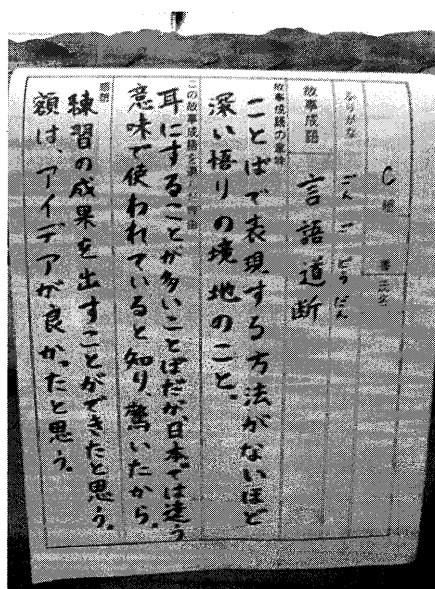 C組 番 氏名
ふりがな ごんごどうだん
故事成語 言語道断
故事成語の意味
ことばで表現する方法がないほど
深い悟りの境地のこと。
この故事成語を選んだ理由
耳にすることが多いことばだが、日本では違う
意味で使われていると知り、驚いたから。
感想
練習の成果を出すことができたと思う。
額は、アイデアが良かったと思う。